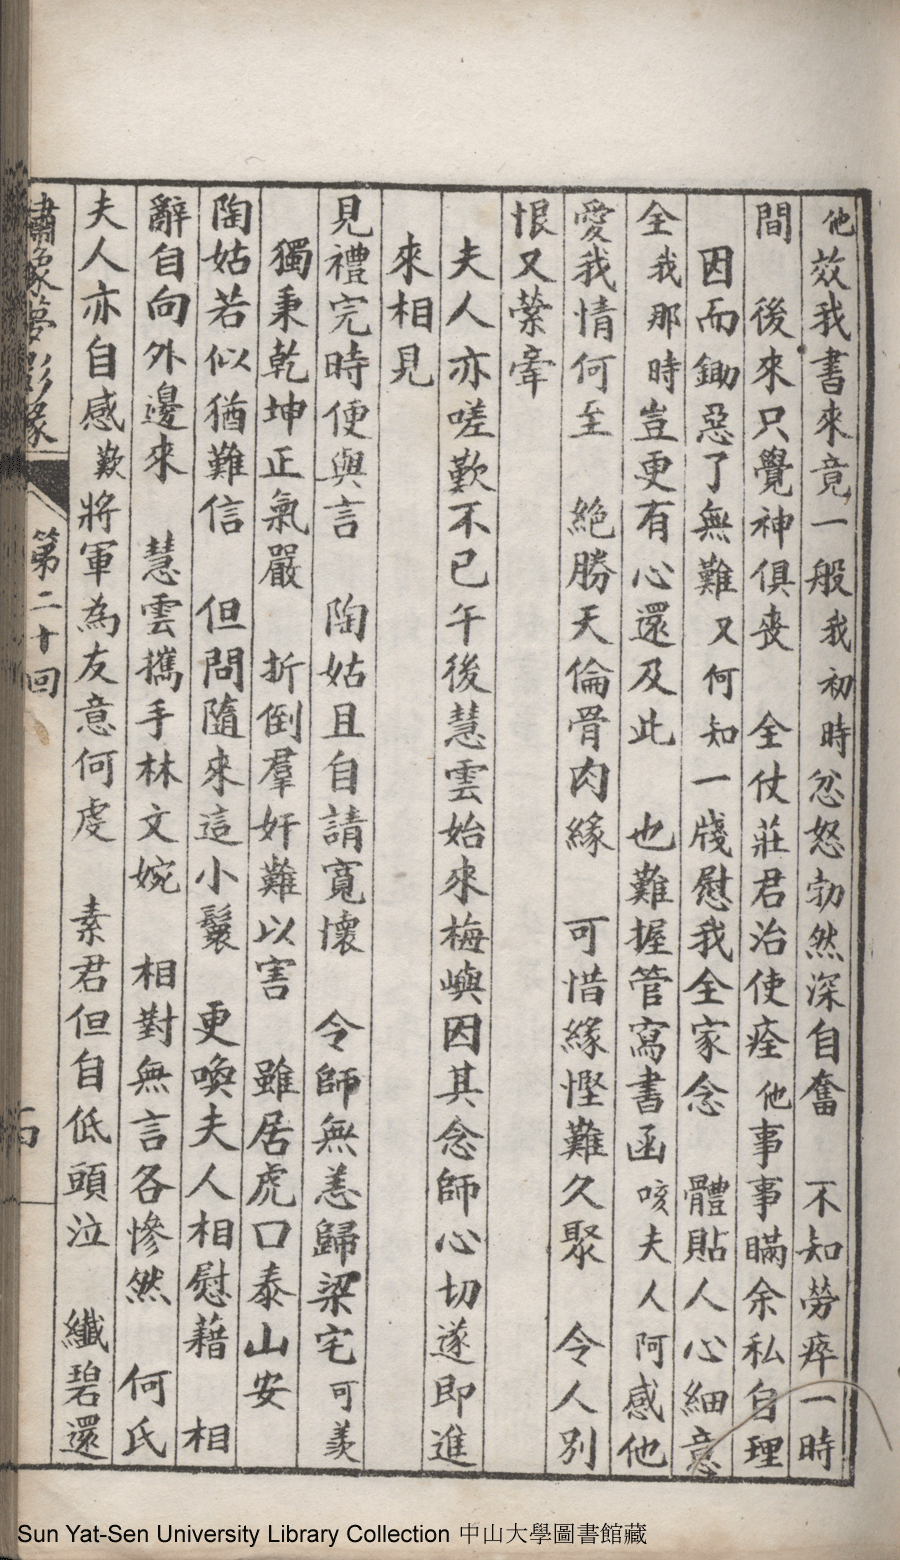 他效我書來竟一般我初時忿怒勃然深自奮　不知勞瘁一時
間　後來只覺神俱喪　全仗莊君治使痊他事事瞞余私自理
因而鋤惡了無難又何知一牋慰我全家念　體貼人心細意
全我那時豈更有心還及此　也難握管寫書函咳夫人阿感他
愛我情何至　絶勝天倫骨肉緣　可惜緣慳難久聚　令人別
恨又縈牽
夫人亦嗟歎不已午後慧雲始來梅嶼因其念師心切遂即進
來相見
見禮完時便與言　陶姑且自請寬懷　令師無恙歸梁宅可羨
獨秉乾坤正氣嚴　折倒羣奸難以害　雖居虎口泰山安
陶姑若似猶難信　但問隨來這小鬟　更喚夫人相慰藉　相
辭自向外邊來　慧雲攜手林文婉　相對無言各慘然　何氏
夫人亦自感歎將軍為友意何虔　素君但自低頭泣　纖碧還
繡像夢影緣　第二十回
Sun Yat-Sen University Library Collection 中山大學圖書館藏